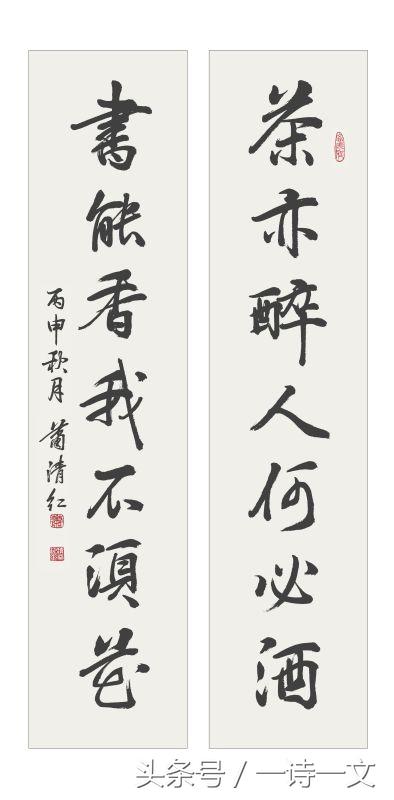 茶亦醉人何必酒
書能香我不須花
丙申秋月
蕭清紅
头条号 / 一诗一文